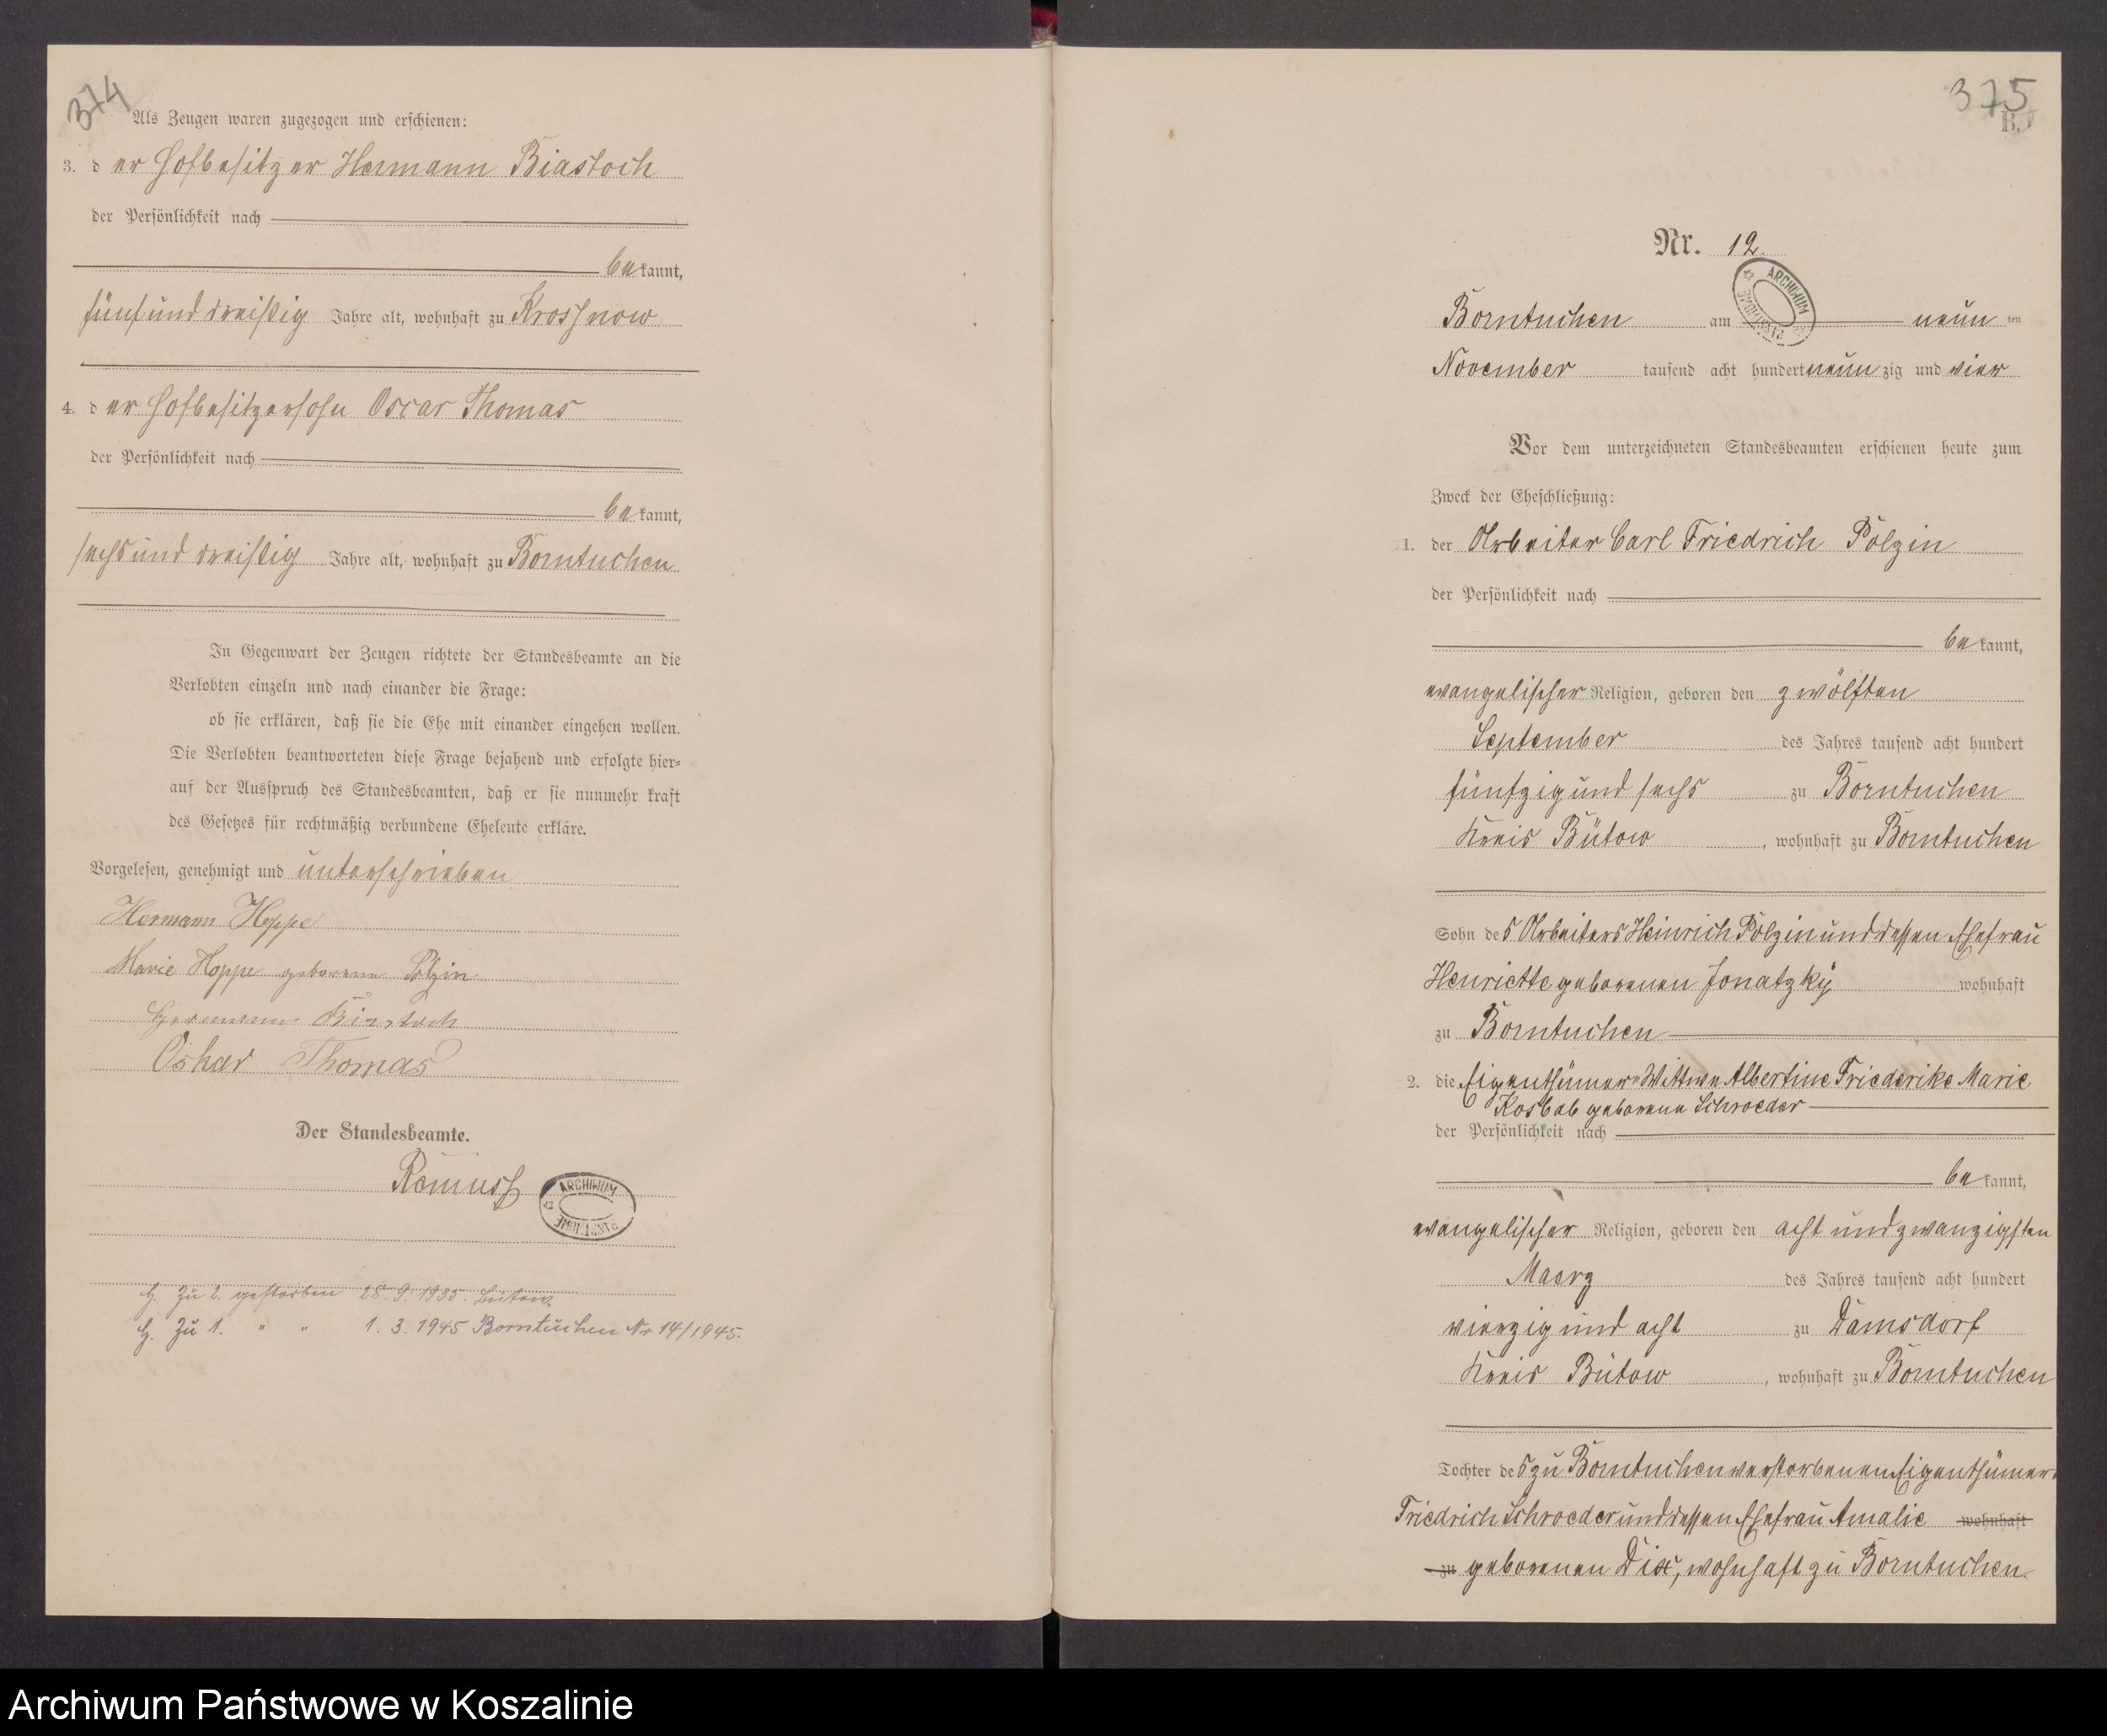 374
Als Zeugen waren zugezogen und erschienen:
3. der Hofbesitzer Hermann Biastoch
der Persönlichkeit nach
bekannt,
fünf und dreißig Jahre alt, wohnhaft zu Krossnow
4. der Hofbesitzersohn Oscar Thomas
der Persönlichkeit nach
bekannt,
sechs und dreißig Jahre alt, wohnhaft zu Borntuchen
In Gegenwart der Zeugen richtete der Standesbeamte an die
Verlobten einzeln und nach einander die Frage:
ob sie erklären, daß sie die Ehe mit einander eingehen wollen.
Die Verlobten beantworteten diese Frage bejahend und erfolgte hier-
auf der Ausspruch des Standesbeamten, daß er sie nunmehr kraft
des Gesetzes für rechtmäßig verbundene Eheleute erkläre.
Vorgelesen, genehmigt und unterschrieben
Hermann Hoppe
Marie Hoppe geborene Polzin
Hermann Biastoch
Oskar Thomas
Der Standesbeamte.
Remuss
ARCHIWUM
PAŃSTWOWE
H. Zu 2. gestorben 28.9.1935. Bütow
H. Zu 1. " " 1.3.1945 Borntuchen Nr 14/1945.
375
B.
Nr. 12.
ARCHIWUM
PAŃSTWOWE
Borntuchen am neun ten
November tausend acht hundert neun zig und vier
Vor dem unterzeichneten Standesbeamten erschienen heute zum
Zweck der Eheschließung:
1. der Arbeiter Carl Friedrich Polzin
der Persönlichkeit nach
bekannt,
evangelischer Religion, geboren den zwölften
September des Jahres tausend acht hundert
fünfzig und sechs zu Borntuchen
Kreis Bütow, wohnhaft zu Borntuchen
Sohn des Arbeiters Heinrich Polzin und dessen Ehefrau
Henriette geborenen Jonatzky wohnhaft
zu Borntuchen
2. die Eigenthümer-Wittwe Albertine Friederike Marie
Kosbab geborene Schroeder
der Persönlichkeit nach
bekannt,
evangelischer Religion, geboren den acht und zwanzigsten
Maerz des Jahres tausend acht hundert
vierzig und acht zu Damsdorf
Kreis Bütow, wohnhaft zu Borntuchen
Tochter des zu Borntuchen verstorbenen Eigenthümers
Friedrich Schroeder und dessen Ehefrau Amalie wohnhaft
zu geborenen Dix, wohnhaft zu Borntuchen.
Archiwum Państwowe w Koszalinie